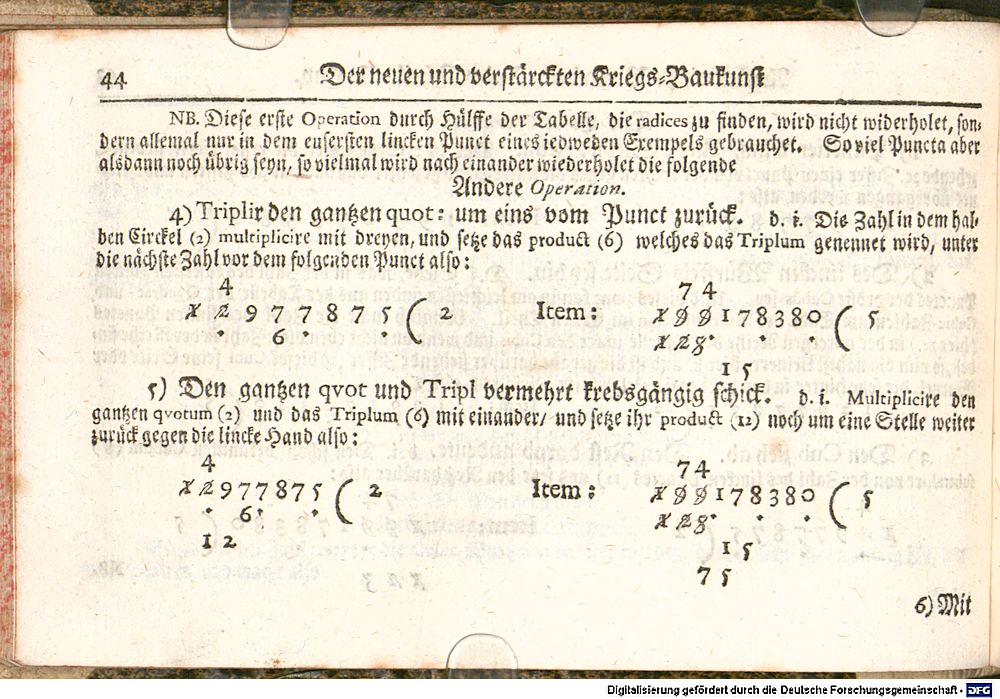 44 Der neuen und verstärckten Kriegs-Baukunst
NB. Diese erste Operation durch Hülffe der Tabelle, die radices zu finden, wird nicht widerholet, son-
dern allemal nur in dem eusersten lincken Punct eines iedweden Exempels gebrauchet. So viel Puncta aber
alsdann noch übrig seyn, so vielmal wird nach einander wiederholet die folgende
Andere Operation.
4) Triplir den gantzen quot: um eins vom Punct zurück. d. i. Die Zahl in dem hal-
ben Circkel (2) multiplicire mit dreyen, und setze das product (6) welches das Triplum genennet wird, unter
die nächste Zahl vor dem folgenden Punct also:
4
1 2 9 7 7 8 7 5 ( 2
. 6 . .
Item:
7 4
1 9 9 1 7 8 3 8 0 ( 5
1 2 8 . . .
1 5
5) Den gantzen qvot und Tripl vermehrt krebsgängig schick. d. i. Multiplicire den
gantzen qvotum (2) und das Triplum (6) mit einander/ und setze ihr product (12) noch um eine Stelle weiter
zurück gegen die lincke Hand also:
4
1 2 9 7 7 8 7 5 ( 2
. 6 . .
1 2
Item:
7 4
1 9 9 1 7 8 3 8 0 ( 5
1 2 8 . . .
1 5
7 5
6) Mit
Digitalisierung gefördert durch die Deutsche Forschungsgemeinschaft - DFG